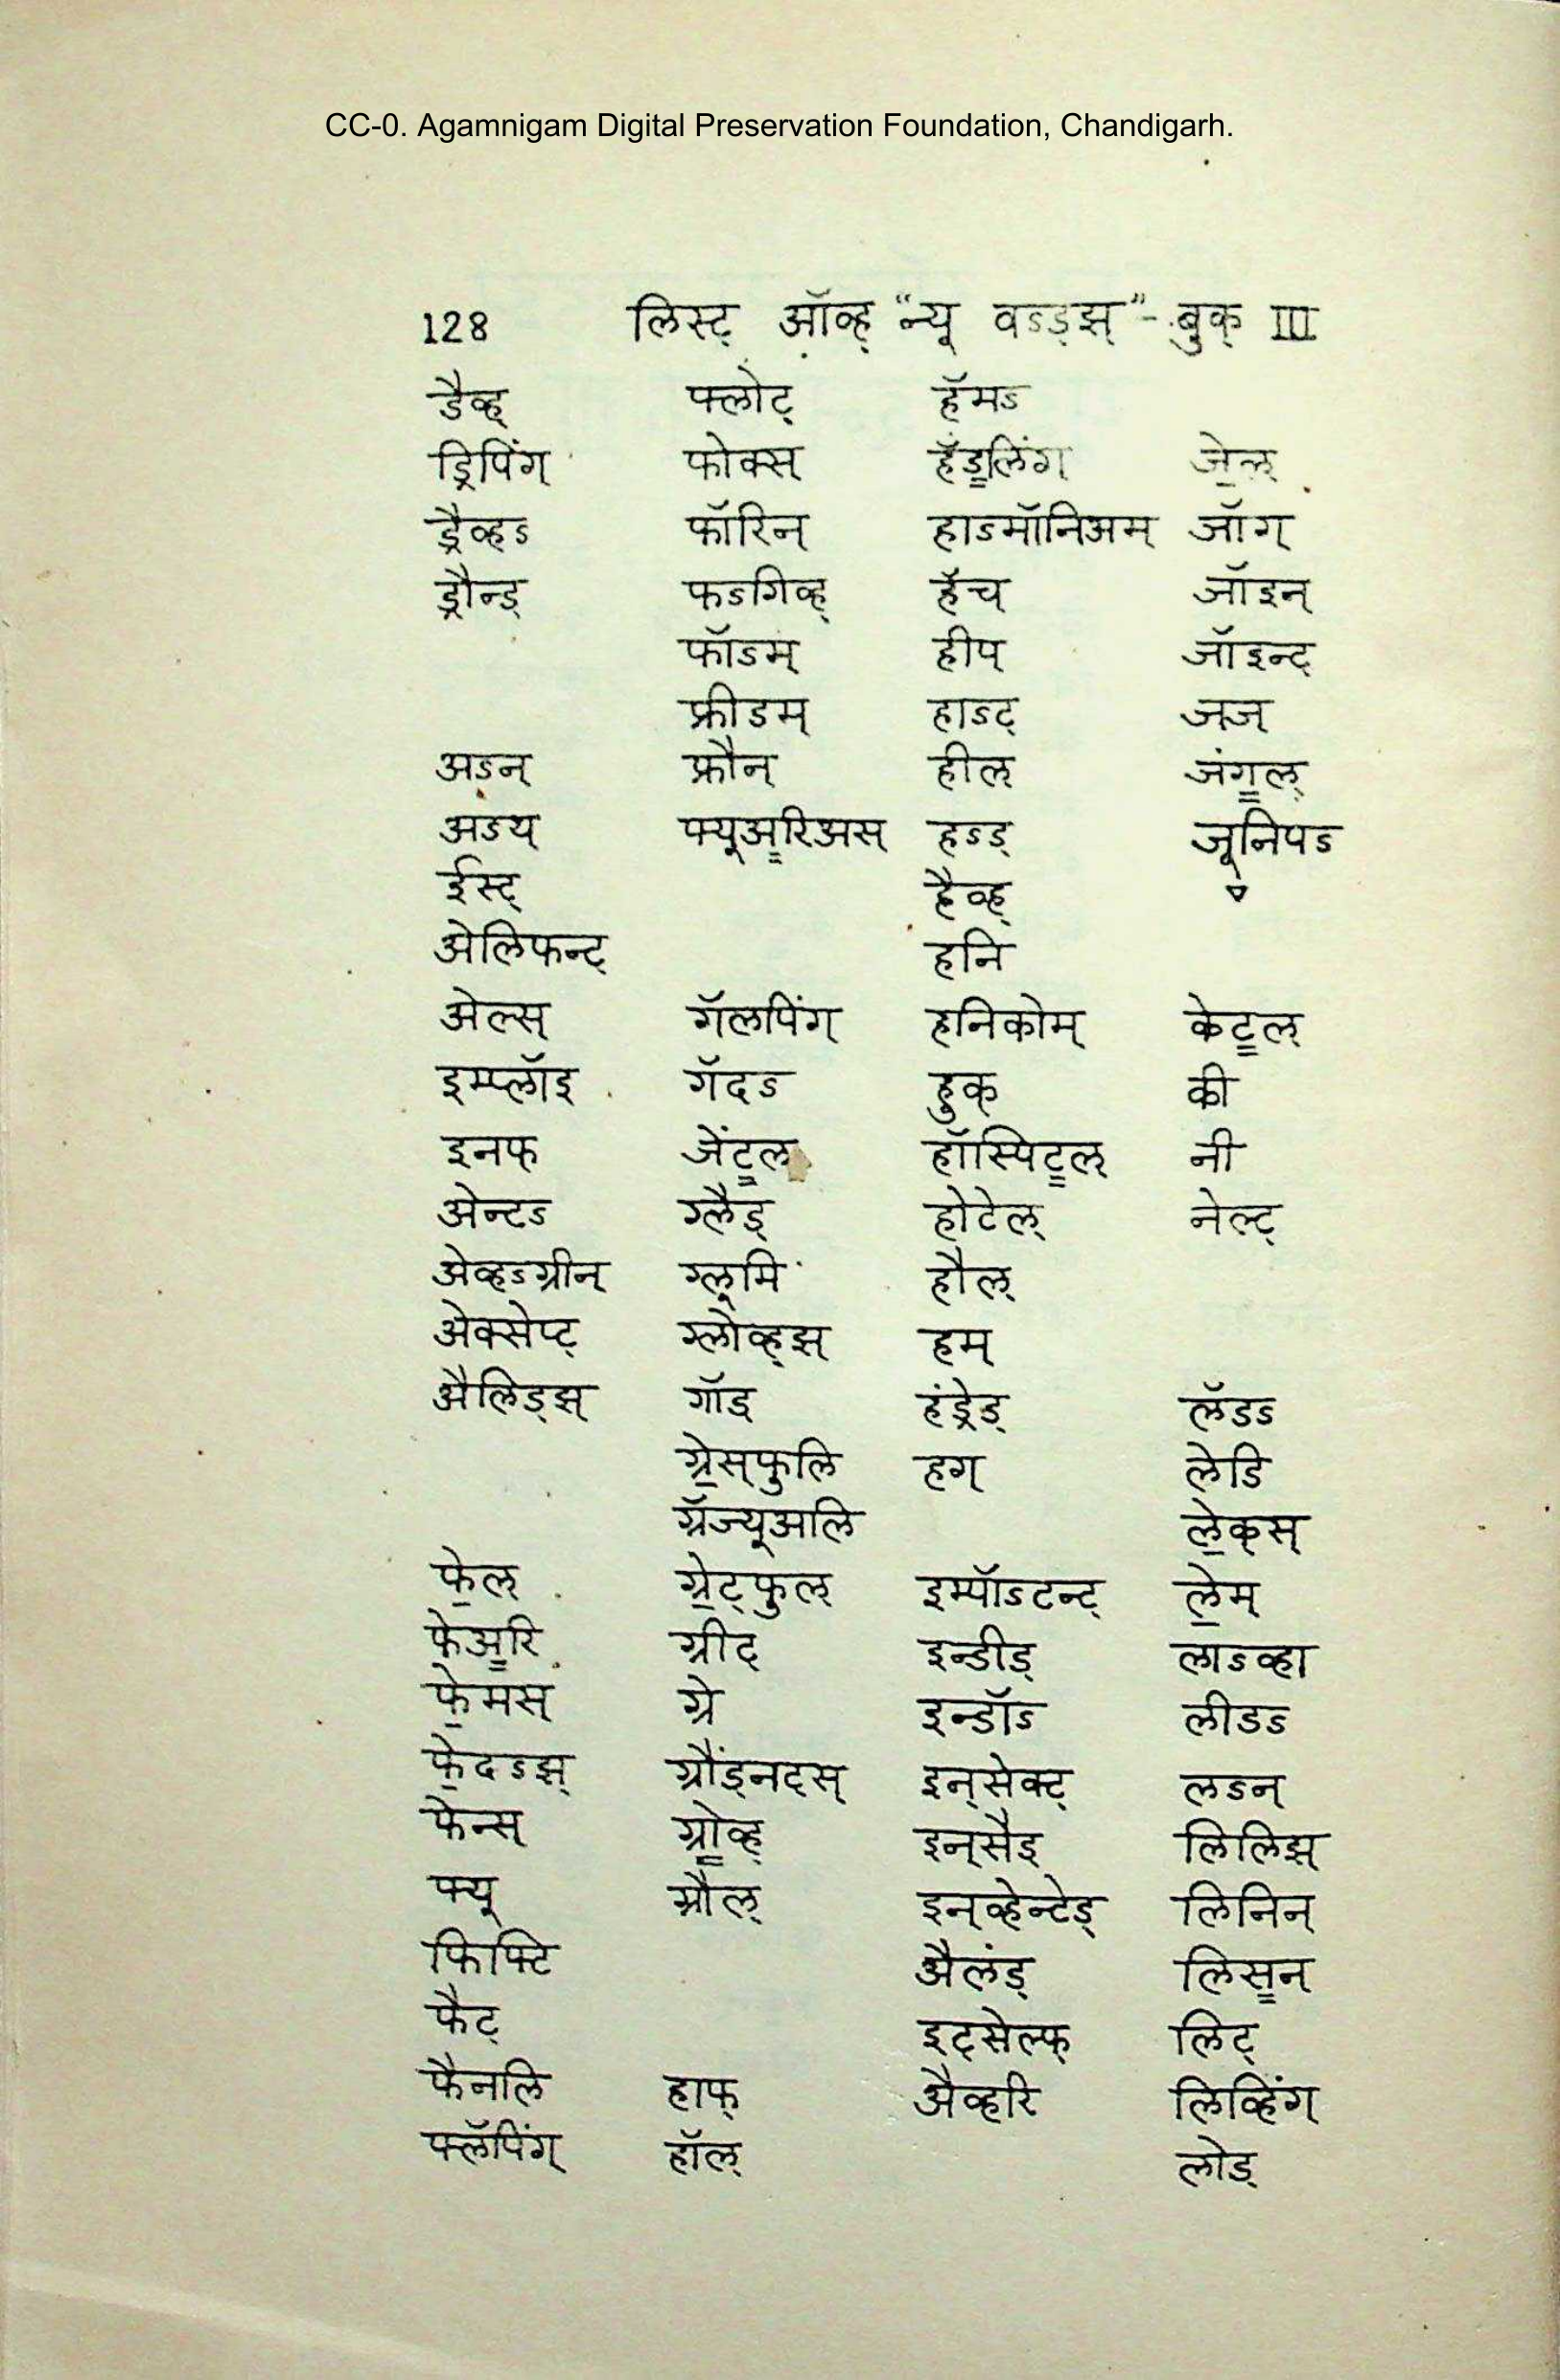 CC-0. Agamnigam Digital Preservation Foundation, Chandigarh.
128 लिस्ट् ऑव्ह् “न्यू वऽड्झ्” - बुक् III
डैव्ह्
ड्रिपिंग्
ड्रैव्हऽ
ड्रौन्ड्
अऽन्
अऽथ्
ईस्ट्
अेलिफन्ट्
अेल्स्
इम्प्लॉइ
इनफ्
अेन्टऽ
अेव्हऽग्रीन्
अेक्सेप्ट्
अैलिड्झ्
फे॒ल्
फेअ॒रि
फे॒मस्
फे॒दऽझ्
फेन्स्
फ्यू
फिफ्टि
फैट्
फैनलि
फ्लॅपिंग्
फ्लोट्
फोक्स्
फॉरिन्
फऽगिव्ह्
फॉऽम्
फ्रीडम्
फ्रौन्
फ्यूअ॒रिअस्
गॅलपिंग्
गॅदऽ
जेंट॒ल्
ग्लैड्
ग्लूमि
ग्लोव्ह्झ्
गॉड्
ग्रे॒स्फुलि
ग्रॅज्यूअलि
ग्रे॒ट्फुल्
ग्रीट्
ग्रे
ग्रौंड्नट्स्
ग्रो॒व्ह्
ग्रौल्
हाफ्
हॉल्
हॅमऽ
हॅंड॒लिंग्
हाऽमॉनिअम्
हॅच्
हीप्
हाऽट्
हील्
हऽड्
हैव्ह्
हनि
हनिकोम्
हुक्
हॉस्पिट॒ल्
होटेल्
हौल्
हम्
हंड्रेड्
हग्
इम्पॉऽटन्ट्
इन्डीड्
इन्डॉऽ
इन्सेक्ट्
इन्सैड्
इन्व्हेन्टेड्
अैलंड्
इट्सेल्फ्
अैव्हरि
जे॒ल्
जॉग्
जॉइन्
जॉइन्ट्
जज्
जंग॒ल्
जूनिपऽ
केट॒ल्
की
नी
नेल्ट्
लॅडऽ
लेडि
ले॒क्स्
ले॒म्
लाऽव्हा
लीडऽ
लऽन्
लिलिझ्
लिनिन्
लिस॒न्
लिट्
लिव्हिंग्
लोड्